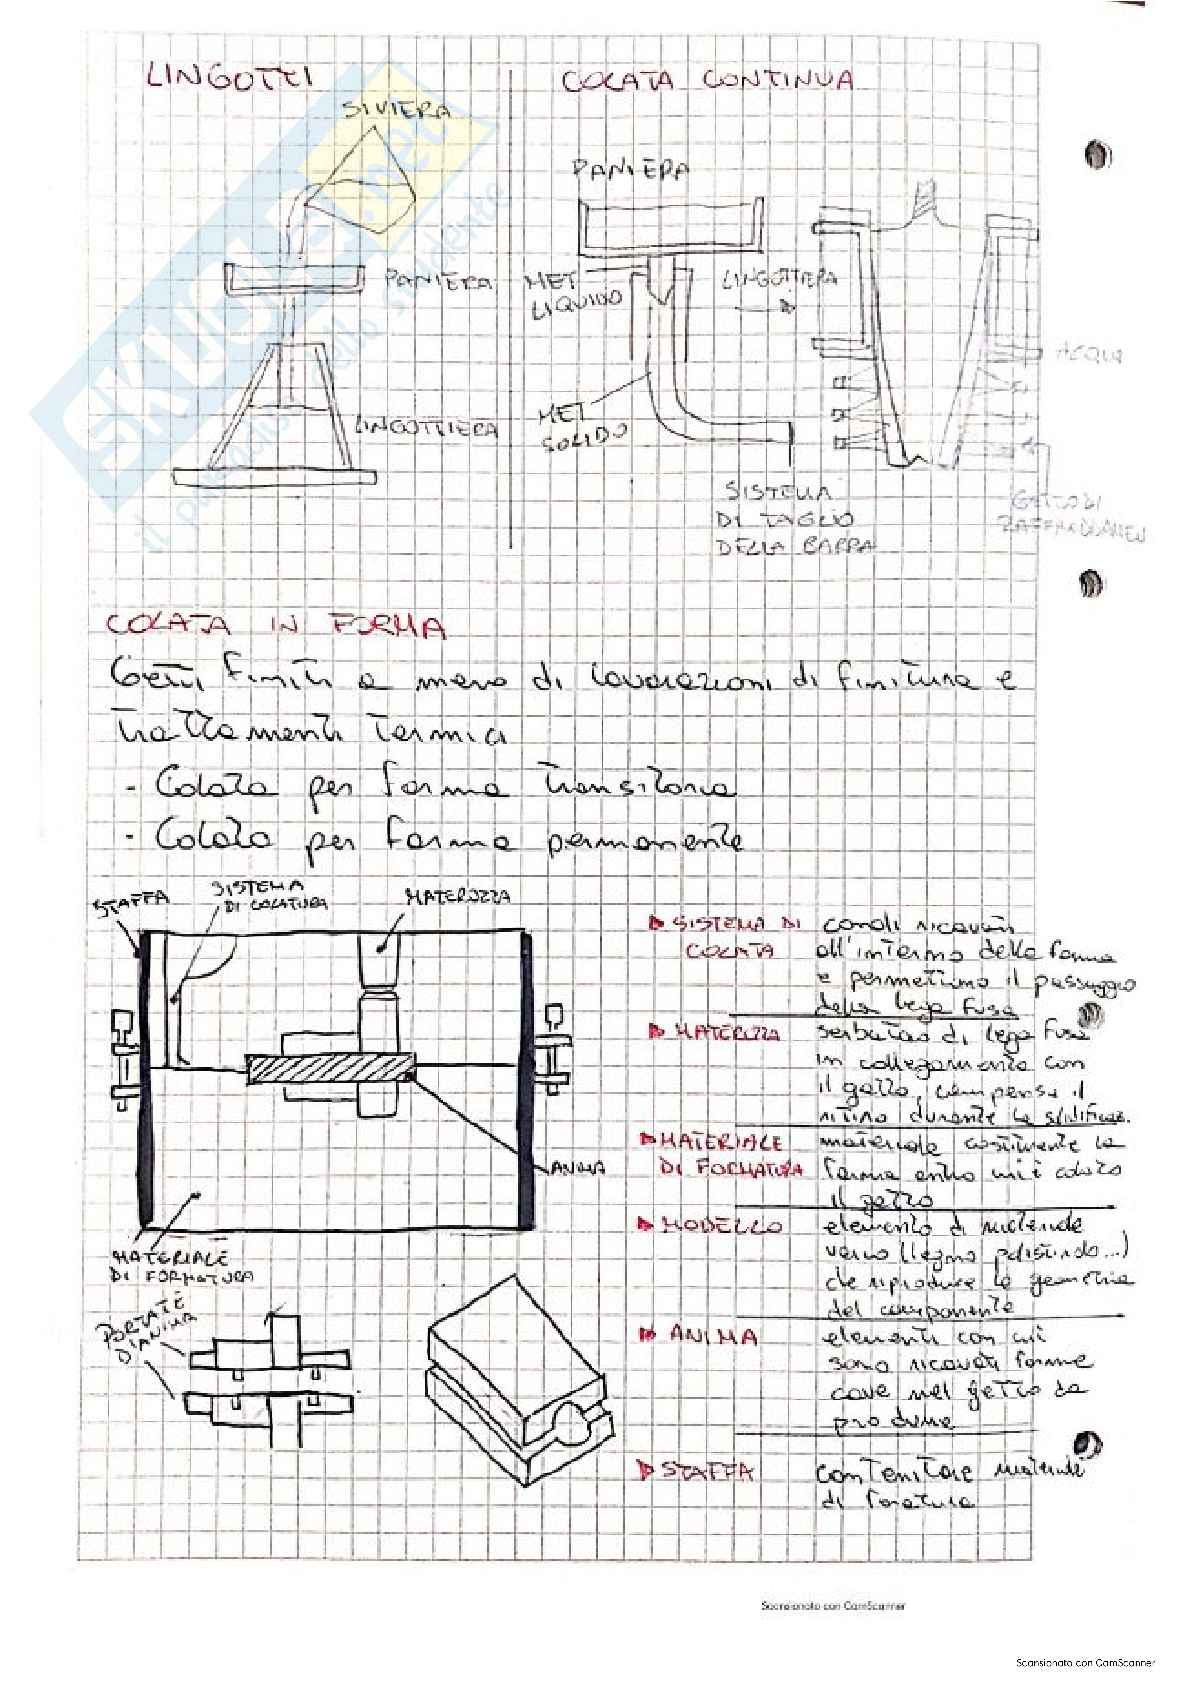 LINGOTTI
SIVIERA
PANIERA
LINGOTTIERA
COLATA CONTINUA
PANIERA
MET
LIQUIDO
LINGOTTIERA
MET
SOLIDO
SISTEMA
DI TAGLIO
DELLA BARRA
ACQUA
GETTO DI
SKUOLA.net
il paradiso dello studente
COLATA IN FORMA
Getti finiti a meno di lavorazioni di finitura e
trattamenti termici
- Colata per forma transitoria
- Colata per forma permanente
STAFFA
SISTEMA
DI COLATURA
MATEROZZA
ANIMA
MATERIALE
DI FORMATURA
PORTATE
D'ANIMA
SISTEMA DI COLATA
canali ricavati
all'interno della forma
e permettono il passaggio
della lega fusa
MATEROZZA
serbatoio di lega fusa
in collegamento con
il getto, compensa il
ritiro durante la solidificaz.
MATERIALE DI FORMATURA
materiale costituente la
forma entro cui è colato
il getto
MODELLO
elemento di materiale
vario (legno polistirolo...)
che riproduce la geometria
del componente
ANIMA
elementi con cui
sono ricavati forme
cave nel getto da
produrre
STAFFA
contenitore materiali
di
Scansionato con CamScanner
Scansionato con CamScanner